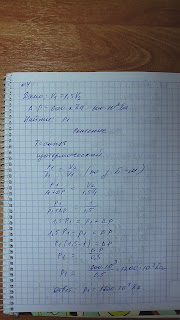 №4
Дано: V₁ = 1,5V₂
ΔP = 600 кПа = 600·10³ Па
Найти: P₁
Решение
T = const
изотермический
P₁/P₂ = V₂/V₁ (по з. Б-М)
P₁/(P₁+ΔP) = V₂/1,5V₂
P₁/(P₁+ΔP) = 1/1,5
1,5P₁ = P₁ + ΔP
1,5P₁ - P₁ = ΔP
P₁(1,5-1) = ΔP
P₁ = ΔP/0,5
P₁ = 600·10³/0,5 = 1200·10³ Па
Ответ: P₁ = 1200·10³ Па